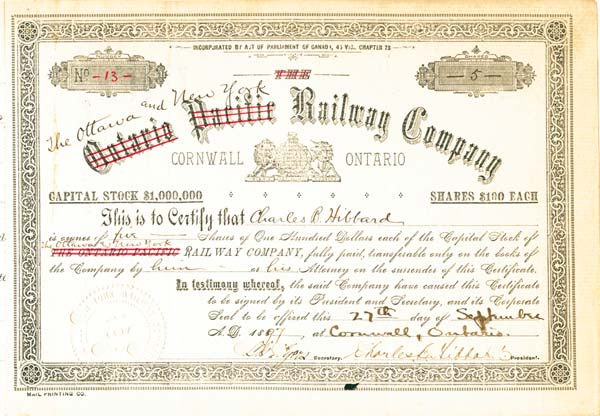 INCORPORATED BY ACT OF PARLIAMENT OF CANADA, 45 VIC., CHAPTER 78
No -13-
THE
SHARES
5
The Ottawa and New York
Ontario Pacific Railway Company
CORNWALL ONTARIO
CAPITAL STOCK $1,000,000
SHARES $100 EACH
This is to Certify that Charles R Hibbard
is owner of five — Shares of One Hundred Dollars each of the Capital Stock of
The Ottawa & New York
THE ONTARIO PACIFIC RAILWAY COMPANY, fully paid, transferable only on the books of
the Company by him — or his Attorney on the surrender of this Certificate.
In testimony whereof, the said Company have caused this Certificate
to be signed by its President and Secretary, and its Corporate
Seal to be affixed this 27th day of September
A.D. 1897 at Cornwall, Ontario.
Secretary. Charles R. Hibbard President.
MAIL PRINTING CO.